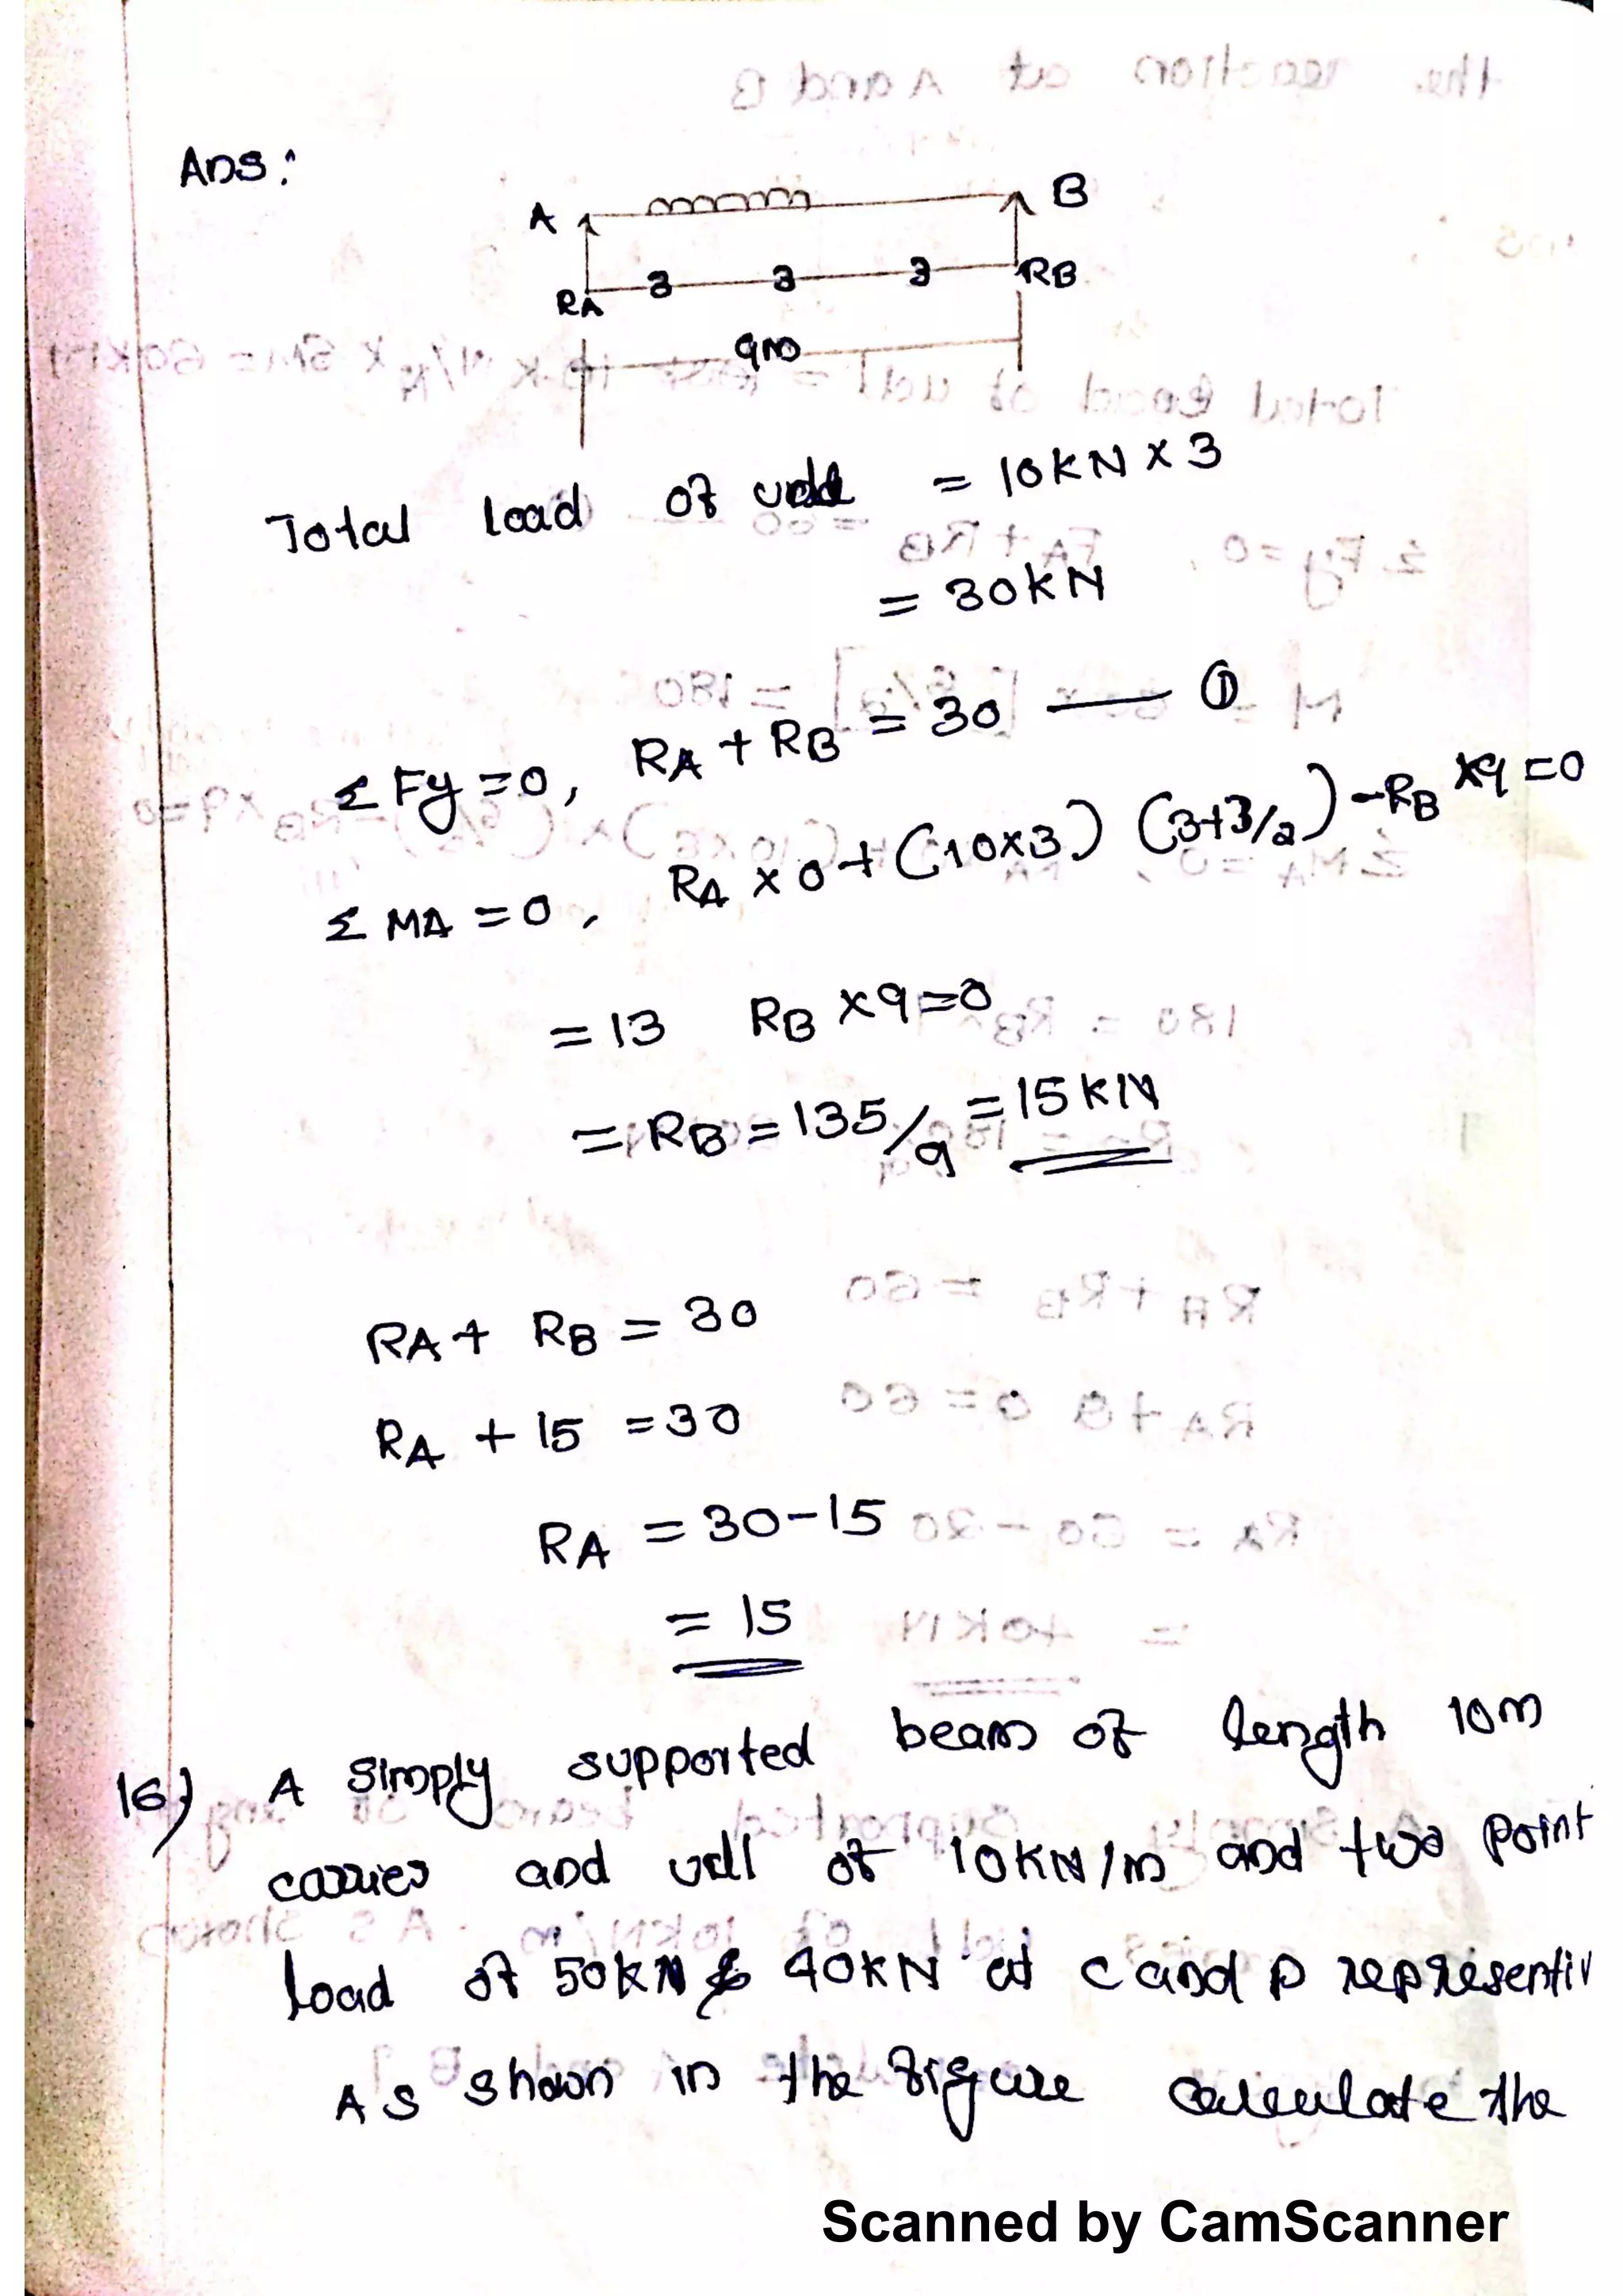 Ans:
A B
RA 3 3 3 RB
9m
Total load of udl = 10KN x 3
= 30KN
Σ Fy = 0, RA + RB = 30 — ①
Σ MA = 0, RA x 0 + (10x3) (3+3/2) - RB x9 = 0
= 13 RB x9=0
= RB = 135/9 = 15KN
RA + RB = 30
RA + 15 = 30
RA = 30-15
= 15
16) A simply supported beam of length 10m
carries and udl of 10KN/m and two point
load of 50KN & 40KN at C and D representiv
As shown in the figure calculate the
Scanned by CamScanner